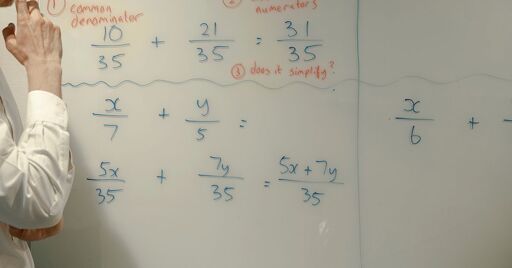 ① common denominator
② numerators
10/35 + 21/35 = 31/35
③ does it simplify?
x/7 + y/5 =
x/6 +
5x/35 + 7y/35 = 5x + 7y/35